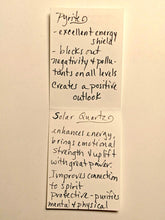 Pyrite
- excellent energy
shield
- blocks out
negativity & pollu-
tants on all levels
Creates a positive
outlook
Solar Quartz
enhances energy,
brings emotional
strength & uplift
with great power.
Improves connection
to Spirit
Protective - purifies
mental & physical